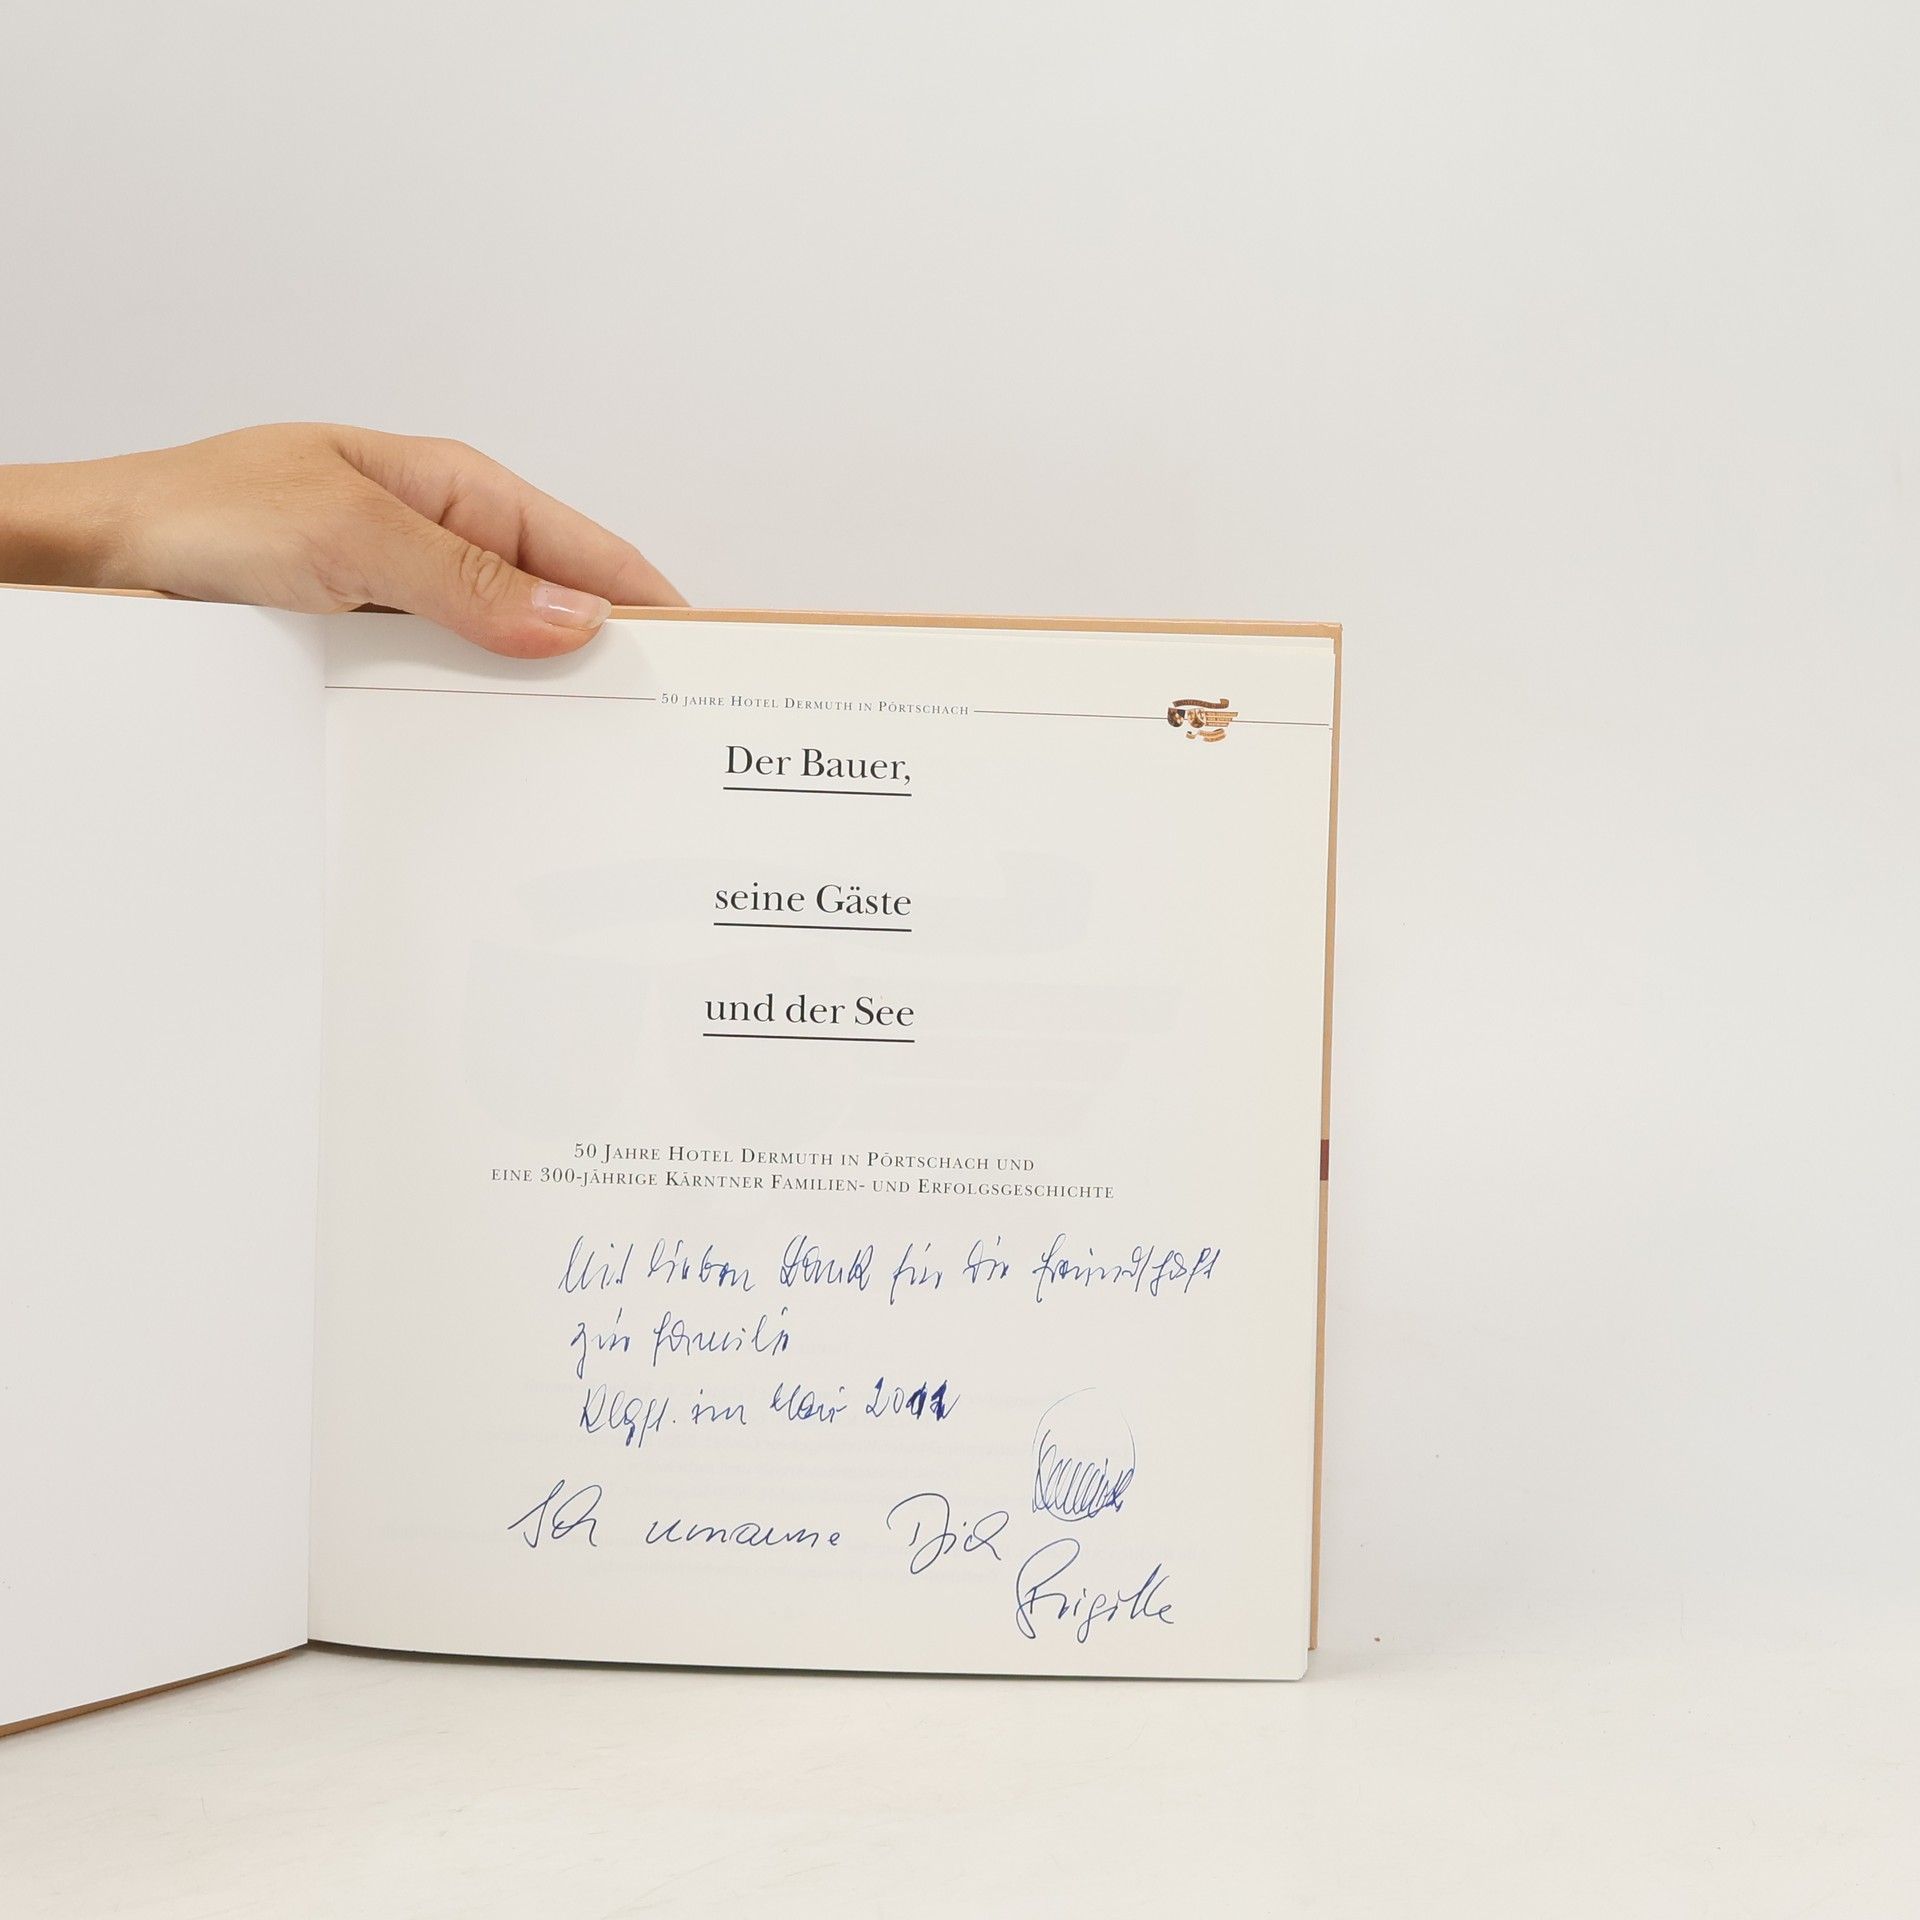 50 JAHRE HOTEL DERMUTH IN PÖRTSCHACH
Der Bauer,
seine Gäste
und der See
50 JAHRE HOTEL DERMUTH IN PÖRTSCHACH UND
EINE 300-JÄHRIGE KÄRNTNER FAMILIEN- UND ERFOLGSGESCHICHTE
Mit lieben Dank für die Freundschaft
zur Familie
Klgft. im Mai 2011
Ich umarme Dich
Brigitte